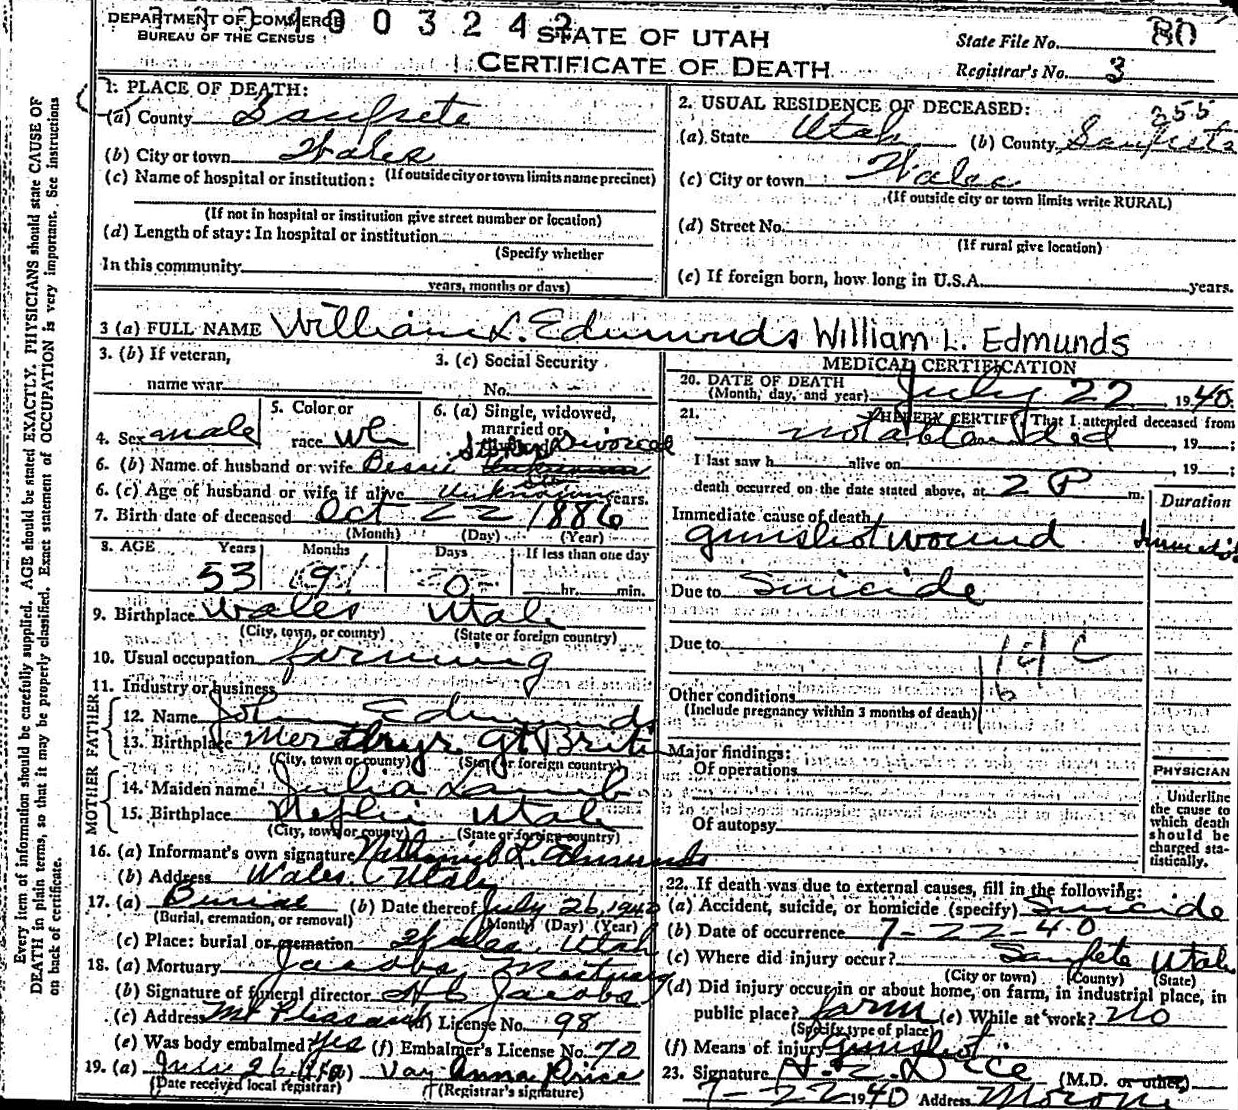 DEPARTMENT OF COMMERCE
BUREAU OF THE CENSUS
STATE OF UTAH
CERTIFICATE OF DEATH
State File No. 80
Registrar's No. 3
1. PLACE OF DEATH:
(a) County Sanpete
(b) City or town Wales
(If outside city or town limits name precinct)
(c) Name of hospital or institution:
(If not in hospital or institution give street number or location)
(d) Length of stay: In hospital or institution
(Specify whether
In this community
years, months or days)
2. USUAL RESIDENCE OF DECEASED: 355
(a) State Utah (b) County Sanpete
(c) City or town Wales
(If outside city or town limits write RURAL)
(d) Street No.
(If rural give location)
(e) If foreign born, how long in U.S.A. years.
3 (a) FULL NAME William L. Edmunds William L. Edmunds
3. (b) If veteran,
name war
3. (c) Social Security
No.
4. Sex male
5. Color or
race wh
6. (a) Single, widowed,
married or
Divorced
6. (b) Name of husband or wife Bessie
6. (c) Age of husband or wife if alive unknown years.
7. Birth date of deceased Oct 22 1886
(Month) (Day) (Year)
8. AGE Years Months Days If less than one day
53 9 0 hr. min.
9. Birthplace Wales Utah
(City, town, or county) (State or foreign country)
10. Usual occupation farming
11. Industry or business
FATHER
12. Name John Edmunds
13. Birthplace Gt Brit
(City, town or county) (State or foreign country)
MOTHER
14. Maiden name Julia Lamb
15. Birthplace Nephi Utah
(City, town or county) (State or foreign country)
16. (a) Informant's own signature Nathaniel L. Edmunds
(b) Address Wales, Utah
17. (a) Burial (b) Date thereof July 26, 1940
(Burial, cremation, or removal) (Month) (Day) (Year)
(c) Place: burial or cremation Wales, Utah
18. (a) Mortuary Jacobs Mortuary
(b) Signature of funeral director Jacobs
(c) Address Mt Pleasant (d) License No. 98
(e) Was body embalmed? Yes (f) Embalmer's License No. 70
19. (a) 26 (b) Anna Price
(Date received local registrar) (Registrar's signature)
MEDICAL CERTIFICATION
20. DATE OF DEATH
(Month, day, and year) July 22 1940
21. I HEREBY CERTIFY, That I attended deceased from
not attended 19 ;
I last saw h alive on 19 ;
death occurred on the date stated above, at 2 P m.
Duration
Immediate cause of death
gunshot wound
Due to suicide
Due to
Other conditions
(Include pregnancy within 3 months of death)
Major findings:
Of operations
Of autopsy
PHYSICIAN
Underline
the cause to
which death
should be
charged sta-
tistically.
22. If death was due to external causes, fill in the following:
(a) Accident, suicide, or homicide (specify) Suicide
(b) Date of occurrence 7-22-40
(c) Where did injury occur? Sanpete Utah
(City or town) (County) (State)
(d) Did injury occur in or about home, on farm, in industrial place, in
public place? farm (e) While at work? no
(Specify type of place)
(f) Means of injury gunshot
23. Signature (M.D. or other)
7-22 1940 Address Moroni
Every item of information should be carefully supplied. AGE should be stated EXACTLY. PHYSICIANS should state CAUSE OF
DEATH in plain terms, so that it may be properly classified. Exact statement of OCCUPATION is very important. See instructions
on back of certificate.